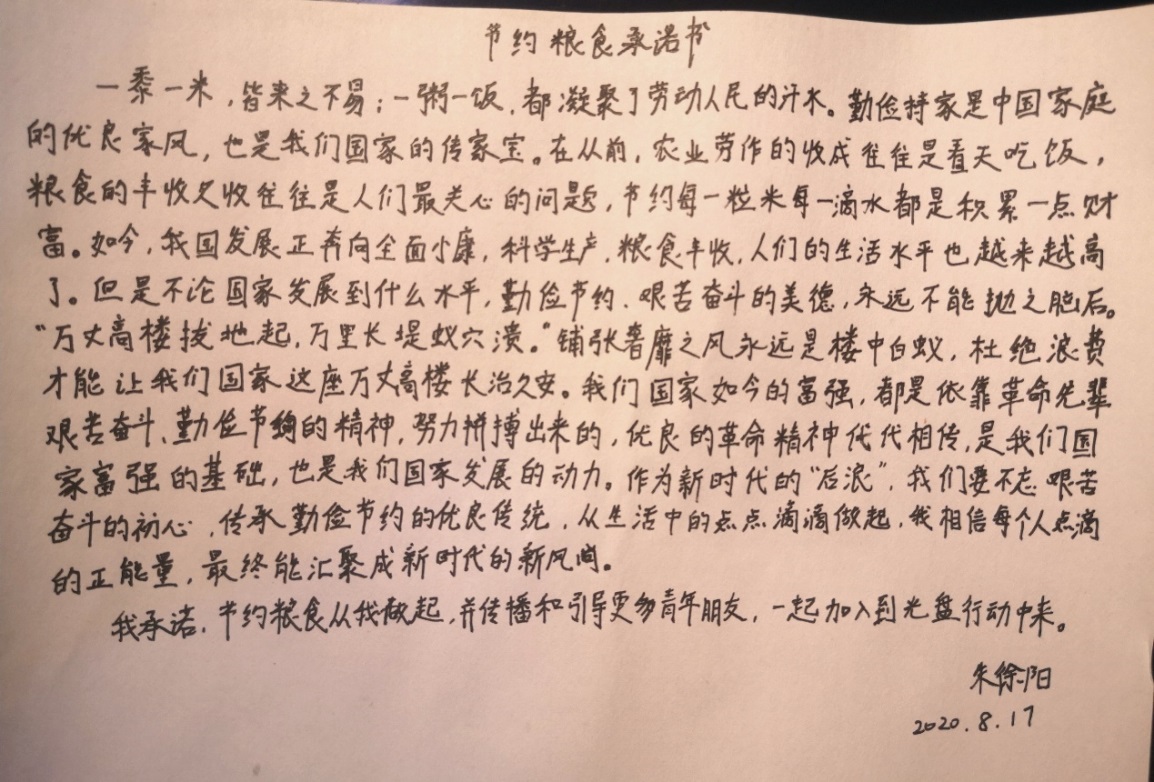 节约粮食承诺书
一黍一米，皆来之不易；一粥一饭，都凝聚了劳动人民的汗水。勤俭持家是中国家庭
的优良家风，也是我们国家的传家宝。在从前，农业劳作的收成往往是看天吃饭，
粮食的丰收欠收往往是人们最关心的问题，节约每一粒米每一滴水都是积累一点财
富。如今，我国发展正奔向全面小康，科学生产，粮食丰收，人们的生活水平也越来越高
了。但是不论国家发展到什么水平，勤俭节约、艰苦奋斗的美德，永远不能抛之脑后。
“万丈高楼拔地起，万里长堤蚁穴溃。”铺张奢靡之风永远是楼中白蚁，杜绝浪费
才能让我们国家这座万丈高楼长治久安。我们国家如今的富强，都是依靠革命先辈
艰苦奋斗、勤俭节约的精神，努力拼搏出来的，优良的革命精神代代相传，是我们国
家富强的基础，也是我们国家发展的动力。作为新时代的“后浪”，我们要不忘艰苦
奋斗的初心，传承勤俭节约的优良传统，从生活中的点点滴滴做起，我相信每个人点滴
的正能量，最终能汇聚成新时代的新风尚。
我承诺，节约粮食从我做起，并传播和引导更多青年朋友，一起加入到光盘行动中来。
朱徐阳
2020.8.17